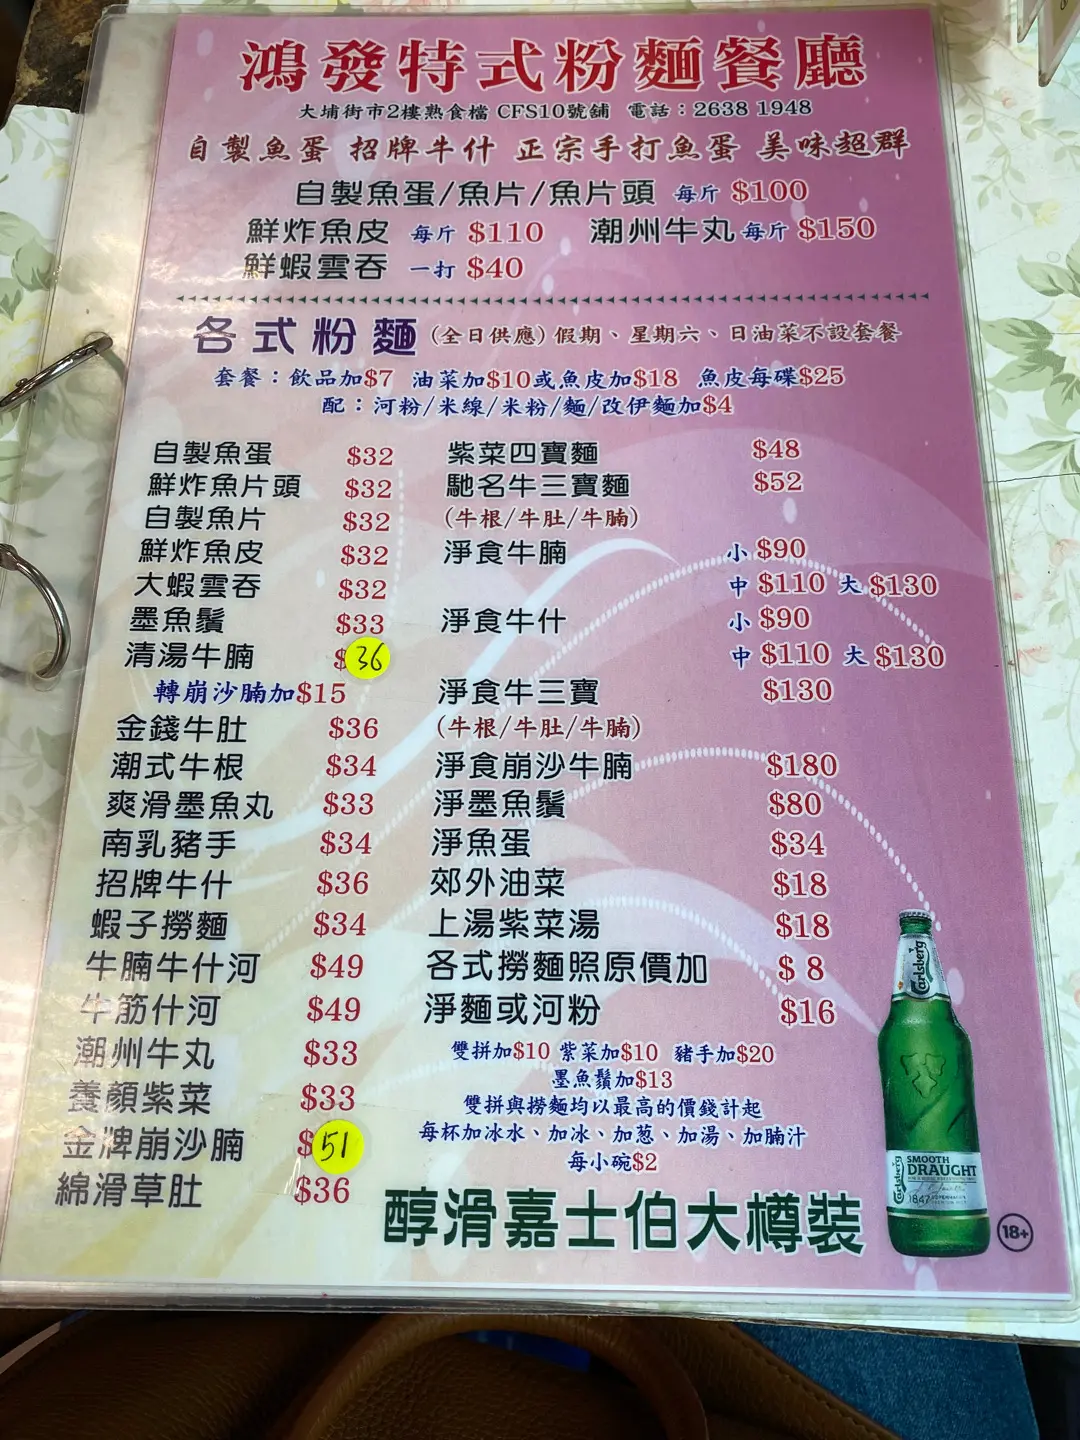 鴻發特式粉麵餐廳
大埔街市2樓熟食檔 CFS10號舖 電話：2638 1948
自製魚蛋 招牌牛什 正宗手打魚蛋 美味超群
自製魚蛋/魚片/魚片頭 每斤 $100
鮮炸魚皮 每斤 $110 潮州牛丸 每斤 $150
鮮蝦雲吞 一打 $40
各式粉麵 (全日供應) 假期、星期六、日油菜不設套餐
套餐：飲品加$7 油菜加$10或魚皮加$18 魚皮每碟$25
配：河粉/米線/米粉/麵/改伊麵加$4
自製魚蛋 $32
鮮炸魚片頭 $32
自製魚片 $32
鮮炸魚皮 $32
大蝦雲吞 $32
墨魚鬚 $33
清湯牛腩 $36
轉崩沙腩加$15
金錢牛肚 $36
潮式牛根 $34
爽滑墨魚丸 $33
南乳豬手 $34
招牌牛什 $36
蝦子撈麵 $34
牛腩牛什河 $49
牛筋什河 $49
潮州牛丸 $33
養顏紫菜 $33
金牌崩沙腩 $51
綿滑草肚 $36
紫菜四寶麵 $48
馳名牛三寶麵 $52
(牛根/牛肚/牛腩)
淨食牛腩 小 $90
中 $110 大 $130
淨食牛什 小 $90
中 $110 大 $130
淨食牛三寶 $130
(牛根/牛肚/牛腩)
淨食崩沙牛腩 $180
淨墨魚鬚 $80
淨魚蛋 $34
郊外油菜 $18
上湯紫菜湯 $18
各式撈麵照原價加 $ 8
淨麵或河粉 $16
雙拼加$10 紫菜加$10 豬手加$20
墨魚鬚加$13
雙拼與撈麵均以最高的價錢計起
每杯加冰水、加冰、加葱、加湯、加腩汁
每小碗$2
醇滑嘉士伯大樽裝
Carlsberg
Carlsberg
SMOOTH
DRAUGHT
1847
18+